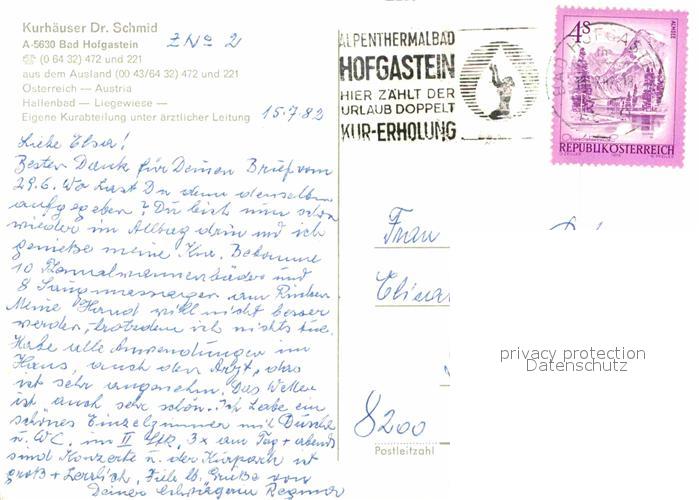 Kurhäuser Dr. Schmid
A-5630 Bad Hofgastein
☏ (0 64 32) 472 und 221
aus dem Ausland (00 43/64 32) 472 und 221
Österreich — Austria
Hallenbad — Liegewiese —
Eigene Kurabteilung unter ärztlicher Leitung
ZNo 2
15.7.82
Liebe Elsa!
Besten Dank für Deinen Brief vom
29.6. Wo hast Du denn denselben
aufgegeben? Du bist nun schon
wieder im Alltag drin und ich
genieße meine Kur. Bekomme
10 Thermalwannenbäder und
8 Saugmassagen am Rücken.
Meine Hand will nicht besser
werden, trotzdem ich nichts tue.
Habe alle Anwendungen im
Haus, auch den Arzt, das
ist sehr angenehm. Das Wetter
ist auch sehr schön. Ich habe ein
schönes Einzelzimmer mit Dusche
u. WC. im II Stk, 3x am Tag + abends
sind Konzerte u. der Kurpark ist
groß + herrlich. Viele lb. Grüße von
Deiner Schwägerin
ALPENTHERMALBAD
HOFGASTEIN
HIER ZÄHLT DER
URLAUB DOPPELT
KUR-ERHOLUNG
4S
ALMSEE
BAD HOFGASTEIN
REPUBLIK ÖSTERREICH
Frau
8200
Postleitzahl
privacy protection
Datenschutz